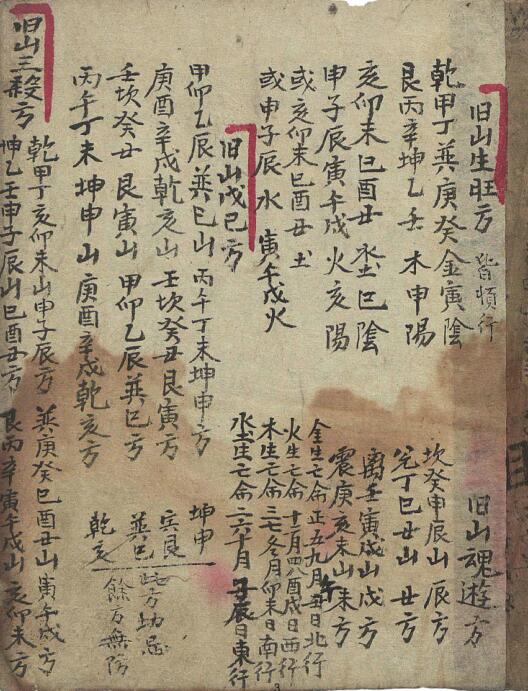 旧山生旺方
皆順行
乾甲丁巽庚癸金寅陰
艮丙辛坤乙壬木申陽
亥卯未巳酉丑水土巳陰
申子辰寅午戌火亥陽
或亥卯未巳酉丑土
或申子辰水 寅午戌火
旧山魂遊方
坎癸申辰山辰方
兑丁巳丑山丑方
离壬寅戌山戌方
震庚亥未山未方
金生亡命正五九月丑日北行
火生亡命十二月四八酉戌日西行
木生亡命三七冬月卯未日南行
水土生亡命二六十月子辰日東行
旧山戊巳方
甲卯乙辰巽巳山丙午丁未坤申方
庚酉辛戌乾亥山壬坎癸丑艮寅方
壬坎癸丑艮寅山甲卯乙辰巽巳方
丙午丁未坤申山庚酉辛戌乾亥方
坤申
寅艮
巽巳
乾亥
此方切忌
餘方無防
旧山三殺方
乾甲丁亥卯未山申子辰方 巽庚癸巳酉丑山寅午戌方
坤乙壬申子辰山巳酉丑方 艮丙辛寅午戌山亥卯未方